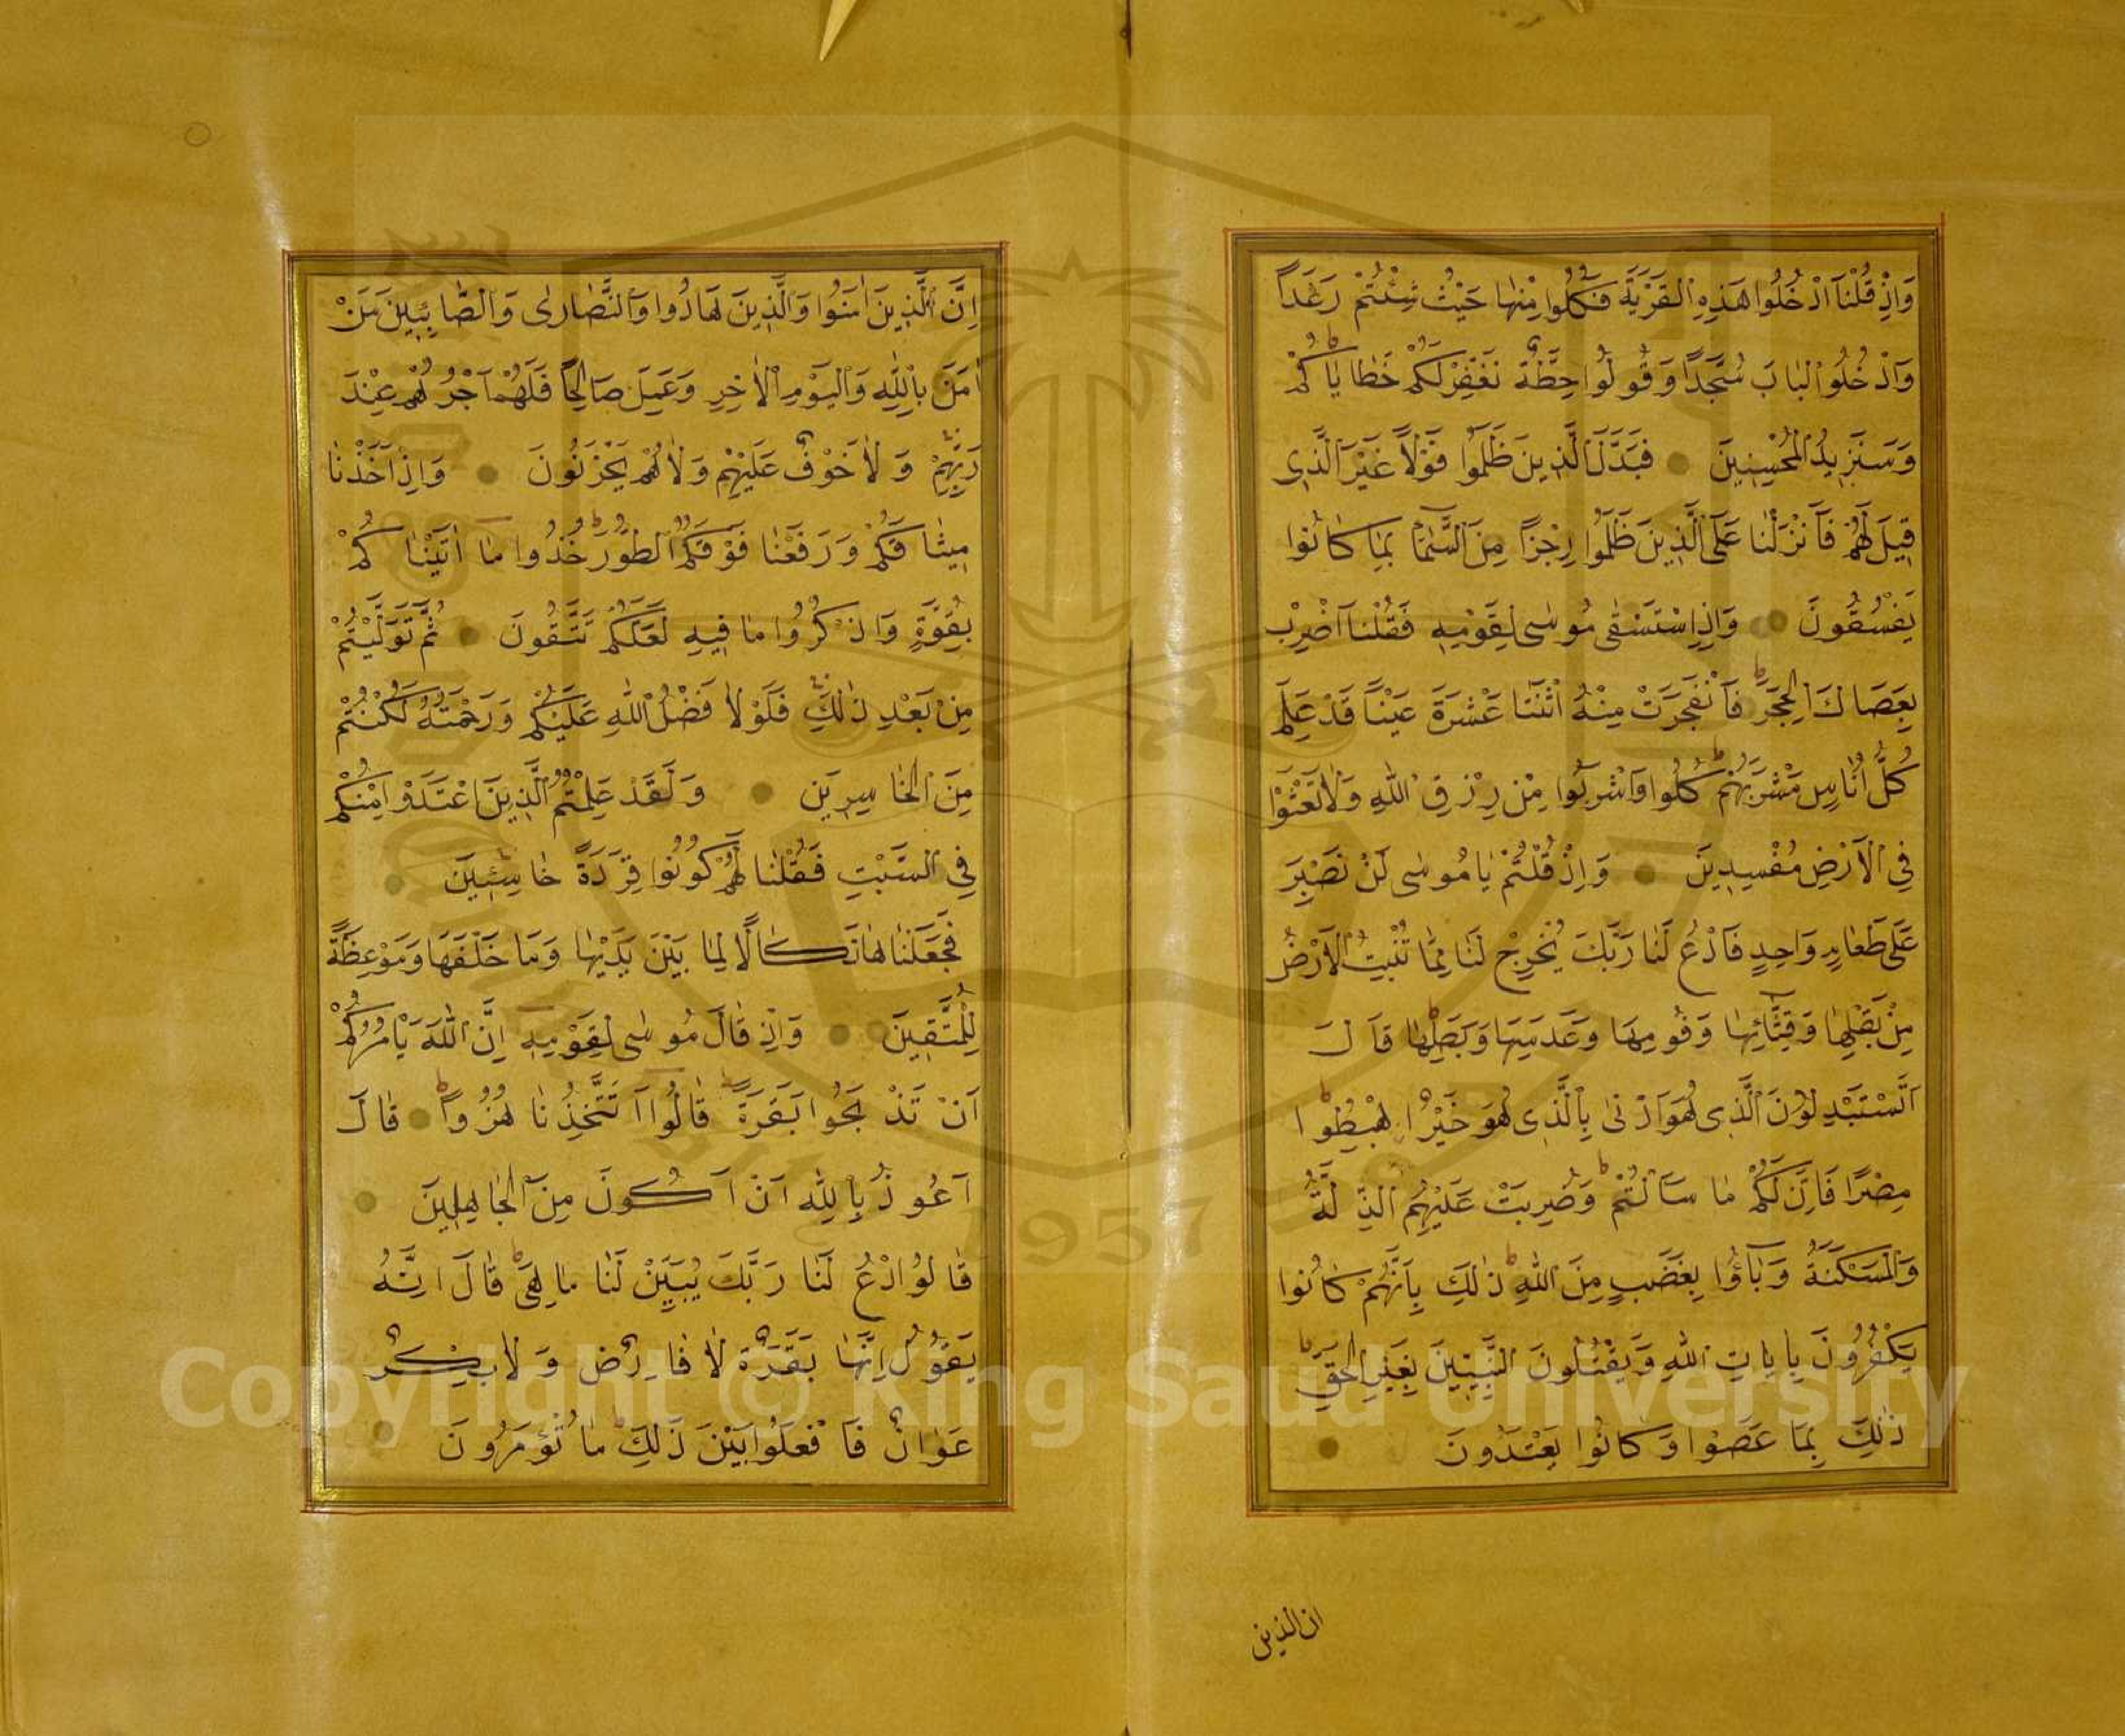 وَاِذْ قُلْنَا ادْخُلُوا هَذِهِ الْقَرْيَةَ فَكُلُوا مِنْهَا حَيْثُ شِئْتُمْ رَغَدًا
وَادْخُلُوا الْبَابَ سُجَّدًا وَقُولُوا حِطَّةٌ نَغْفِرْ لَكُمْ خَطَايَاكُمْ
وَسَنَزِيدُ الْمُحْسِنِينَ فَبَدَّلَ الَّذِينَ ظَلَمُوا قَوْلًا غَيْرَ الَّذِى
قِيلَ لَهُمْ فَاَنْزَلْنَا عَلَى الَّذِينَ ظَلَمُوا رِجْزًا مِنَ السَّمَاءِ بِمَا كَانُوا
يَفْسُقُونَ وَاِذِ اسْتَسْقٰى مُوسٰى لِقَوْمِهِ فَقُلْنَا اضْرِبْ
بِعَصَاكَ الْحَجَرَ فَانْفَجَرَتْ مِنْهُ اثْنَتَا عَشْرَةَ عَيْنًا قَدْ عَلِمَ
كُلُّ اُنَاسٍ مَشْرَبَهُمْ كُلُوا وَاشْرَبُوا مِنْ رِزْقِ اللّٰهِ وَلَا تَعْثَوْا
فِي الْاَرْضِ مُفْسِدِينَ وَاِذْ قُلْتُمْ يَا مُوسٰى لَنْ نَصْبِرَ
عَلٰى طَعَامٍ وَاحِدٍ فَادْعُ لَنَا رَبَّكَ يُخْرِجْ لَنَا مِمَّا تُنْبِتُ الْاَرْضُ
مِنْ بَقْلِهَا وَقِثَّائِهَا وَفُومِهَا وَعَدَسِهَا وَبَصَلِهَا قَالَ
اَتَسْتَبْدِلُونَ الَّذِى هُوَ اَدْنٰى بِالَّذِى هُوَ خَيْرٌ اِهْبِطُوا
مِصْرًا فَاِنَّ لَكُمْ مَا سَاَلْتُمْ وَضُرِبَتْ عَلَيْهِمُ الذِّلَّةُ
وَالْمَسْكَنَةُ وَبَاؤُا بِغَضَبٍ مِنَ اللّٰهِ ذٰلِكَ بِاَنَّهُمْ كَانُوا
يَكْفُرُونَ بِاٰيَاتِ اللّٰهِ وَيَقْتُلُونَ النَّبِيِّينَ بِغَيْرِ الْحَقِّ
ذٰلِكَ بِمَا عَصَوْا وَكَانُوا يَعْتَدُونَ
ان الذين
اِنَّ الَّذِينَ اٰمَنُوا وَالَّذِينَ هَادُوا وَالنَّصَارٰى وَالصَّابِئِينَ مَنْ
اٰمَنَ بِاللّٰهِ وَالْيَوْمِ الْاٰخِرِ وَعَمِلَ صَالِحًا فَلَهُمْ اَجْرُهُمْ عِنْدَ
رَبِّهِمْ وَلَا خَوْفٌ عَلَيْهِمْ وَلَا هُمْ يَحْزَنُونَ وَاِذْ اَخَذْنَا
مِيثَاقَكُمْ وَرَفَعْنَا فَوْقَكُمُ الطُّورَ خُذُوا مَا اٰتَيْنَاكُمْ
بِقُوَّةٍ وَاذْكُرُوا مَا فِيهِ لَعَلَّكُمْ تَتَّقُونَ ثُمَّ تَوَلَّيْتُمْ
مِنْ بَعْدِ ذٰلِكَ فَلَوْلَا فَضْلُ اللّٰهِ عَلَيْكُمْ وَرَحْمَتُهُ لَكُنْتُمْ
مِنَ الْخَاسِرِينَ وَلَقَدْ عَلِمْتُمُ الَّذِينَ اعْتَدَوْا مِنْكُمْ
فِي السَّبْتِ فَقُلْنَا لَهُمْ كُونُوا قِرَدَةً خَاسِئِينَ
فَجَعَلْنَاهَا نَكَالًا لِمَا بَيْنَ يَدَيْهَا وَمَا خَلْفَهَا وَمَوْعِظَةً
لِلْمُتَّقِينَ وَاِذْ قَالَ مُوسٰى لِقَوْمِهِ اِنَّ اللّٰهَ يَاْمُرُكُمْ
اَنْ تَذْبَحُوا بَقَرَةً قَالُوا اَتَتَّخِذُنَا هُزُوًا قَالَ
اَعُوذُ بِاللّٰهِ اَنْ اَكُونَ مِنَ الْجَاهِلِينَ
قَالُوا ادْعُ لَنَا رَبَّكَ يُبَيِّنْ لَنَا مَا هِىَ قَالَ اِنَّهُ
يَقُولُ اِنَّهَا بَقَرَةٌ لَا فَارِضٌ وَلَا بِكْرٌ
عَوَانٌ بَيْنَ ذَلِكَ فَافْعَلُوا مَا تُؤْمَرُونَ
1957
Copyright © King Saud University